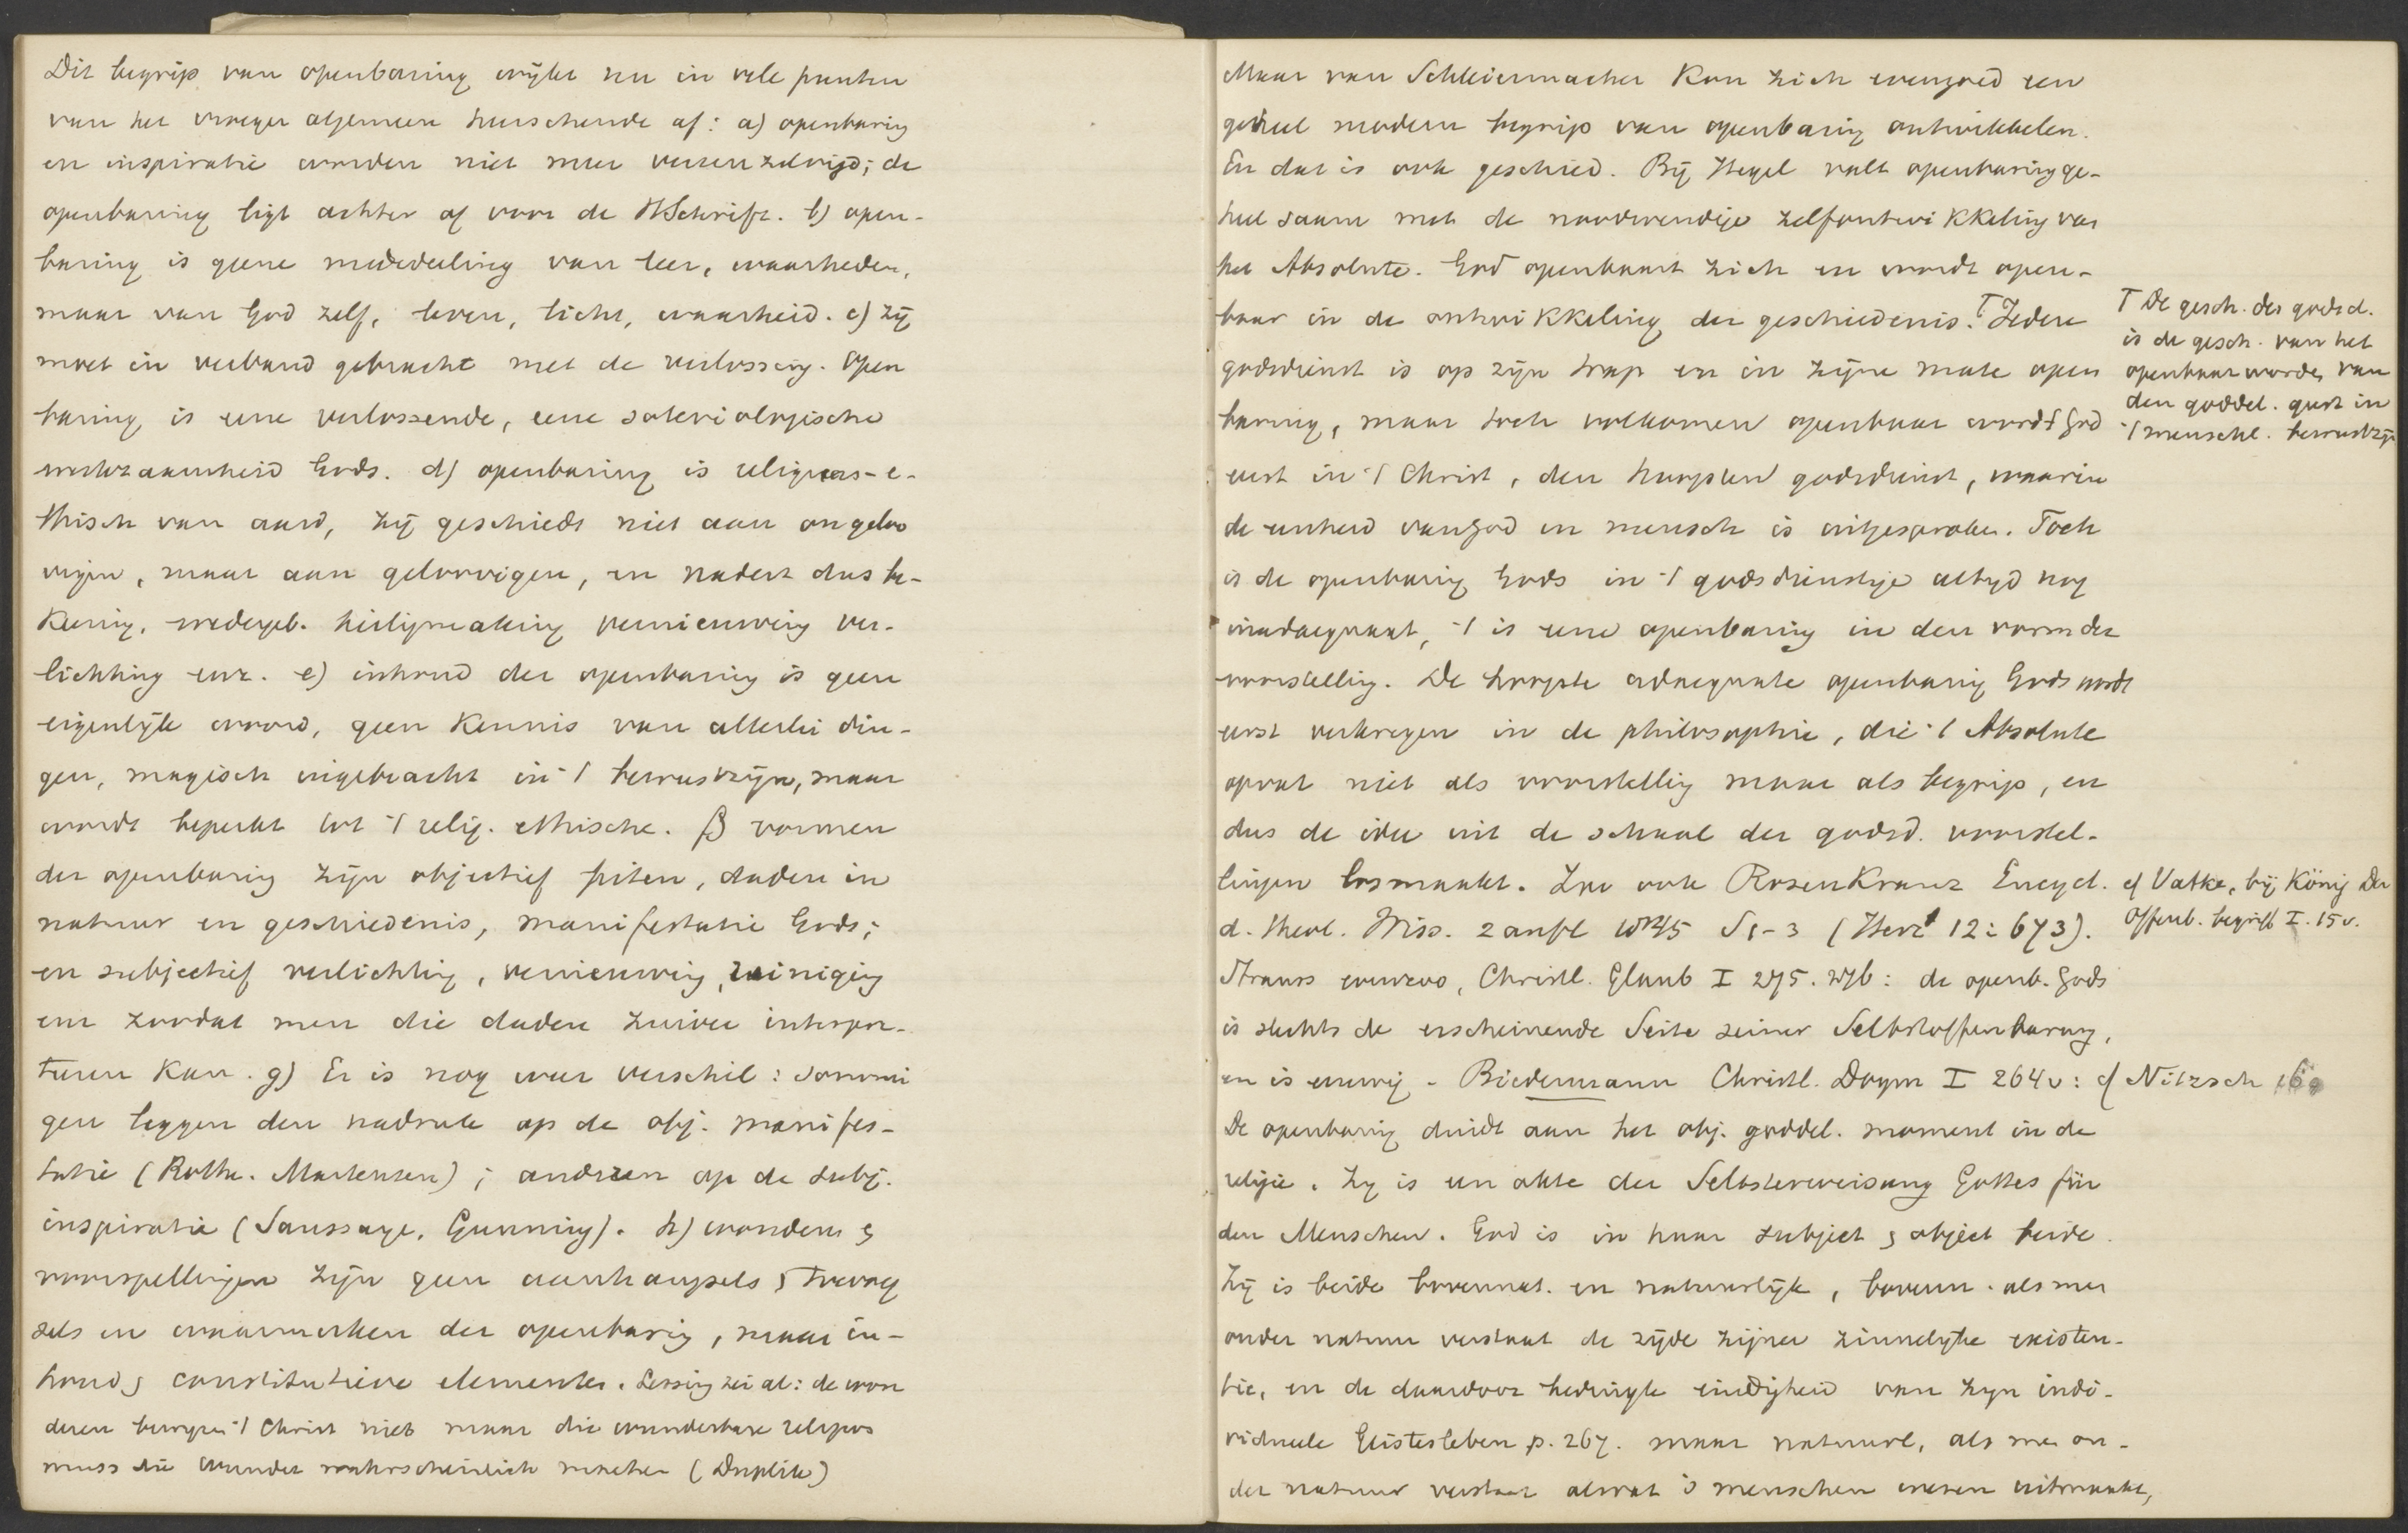 Dit begrip van openbaring wijkt nu in vele punten
van het vroeger algemeen heerschende af: a) openbaring
en inspiratie worden niet meer vereenzelvigd; de
openbaring ligt achter of voor de HSchrift. b) open-
baring is geene mededeeling van leer, waarheden,
maar van God zelf, leven, licht, waarheid. c) zij
moet in verband gebracht met de verlossing. Open
baring is eene verlossende, eene soteriologische
werkzaamheid Gods. d) openbaring is religieus-e-
thisch van aard, zij geschiedt niet aan ongeloo
vigen, maar aan geloovigen, en nadert dus be-
keering, wedergeb. heiligmaking vernieuwing ver-
lichting enz. e) inhoud der openbaring is geen
eigenlijk woord, geen kennis van allerlei din-
gen, magisch ingebracht in 't bewustzijn, maar
wordt beperkt tot 't relig. ethische. f) vormen
der openbaring zijn objectief feiten, daden in
natuur en geschiedenis, manifestatie Gods;
en subjectief verlichting, vernieuwing, reiniging
enz zoodat men die daden zuiver interpre-
teeren kan. g) Er is nog weer verschil: sommi
gen leggen den nadruk op de obj. manifes-
tatie (Rothe. Martensen); anderen op de subj.
inspiratie (Saussaye, Gunning). h) wonderen &
voorspellingen zijn geen aanhangsels & toevoeg
sels en waarmerken der openbaring, maar in-
houd & constitutieve elementen. Lessing zei al: de won
deren bewijzen 't Christ niet maar die wunderbare religion
muss die wunder wahrscheinlich machen (Duplik)
Maar van Schleiermacher kon zich evengoed een
geheel modern begrip van openbaring ontwikkelen.
En dat is ook geschied. Bij Hegel valt openbaring ge-
heel saam met de noodwendige zelfontwikkeling van
het Absolute. God openbaart zich en wordt open-
baar in de ontwikkeling der geschiedenis. T Iedere
godsdienst is op zijn trap en in zijne mate open
baring, maar toch volkomen openbaar wordt God
eerst in 't Christ, den hoogsten godsdienst, waarin
de eenheid van God en mensch is uitgesproken. Toch
is de openbaring Gods in 't godsdienstige altijd nog
inadaequaat, 't is eene openbaring in den vorm der
voorstelling. De hoogste adaequate openbaring Gods wordt
eerst verkregen in de philosophie, die 't Absolute
opvat niet als voorstelling maar als begrip, en
dus de idee uit de schaal der godsd. voorstel-
lingen losmaakt. Zoo ook Rosenkranz Encycl.
d. theol. Wiss. 2 aufl 1845 S 1-3 (Herz 12: 673).
Strauss evenzoo, Christl. Glaub I 275. 276: de openb. Gods
is slechts de erscheinende Seite seiner Selbstoffenbarung,
en is eeuwig - Biedermann Christl. Dogm I 264v:
De openbaring duidt aan het obj. goddel. moment in de
religie. Zij is een akte der Selbsterweisung Gottes für
den Menschen. God is in haar subject & object beide.
Zij is beide bovennat. en natuurlijk, bovenn. als men
onder natuur verstaat de zijde zijner zinnelijke existen-
tie, en de daardoor bedingte eindigheid van zijn indi-
viduele Geistesleben p. 267. maar natuurl, als men on-
der natuur verstaat alwat 's menschen wezen uitmaakt,
T De gesch. der godsd.
is de gesch. van het
openbaar worden van
den goddel. geest in
't menschl. bewustzijn
cf Vatke, bij König Der
Offenb. begriff I. 15v.
cf Nitzsch